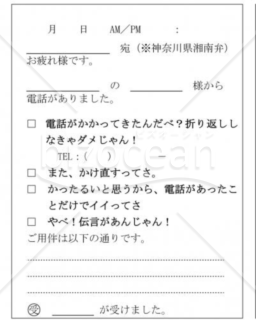 月　日　AM/PM　：
＿＿＿＿＿＿ 宛（※神奈川県湘南弁）
お疲れ様です。
＿＿＿＿ の ＿＿＿＿ 様から
電話がありました。
□ 電話がかかってきたんだべ？折り返しし
なきゃダメじゃん！
TEL：（　）　－
□ また、かけ直すってさ。
□ かったるいと思うから、電話があったこ
とだけでイイってさ
□ やべ！伝言があんじゃん！
ご用件は以下の通りです。
㊤ ＿＿＿＿ が受けました。
bizocean